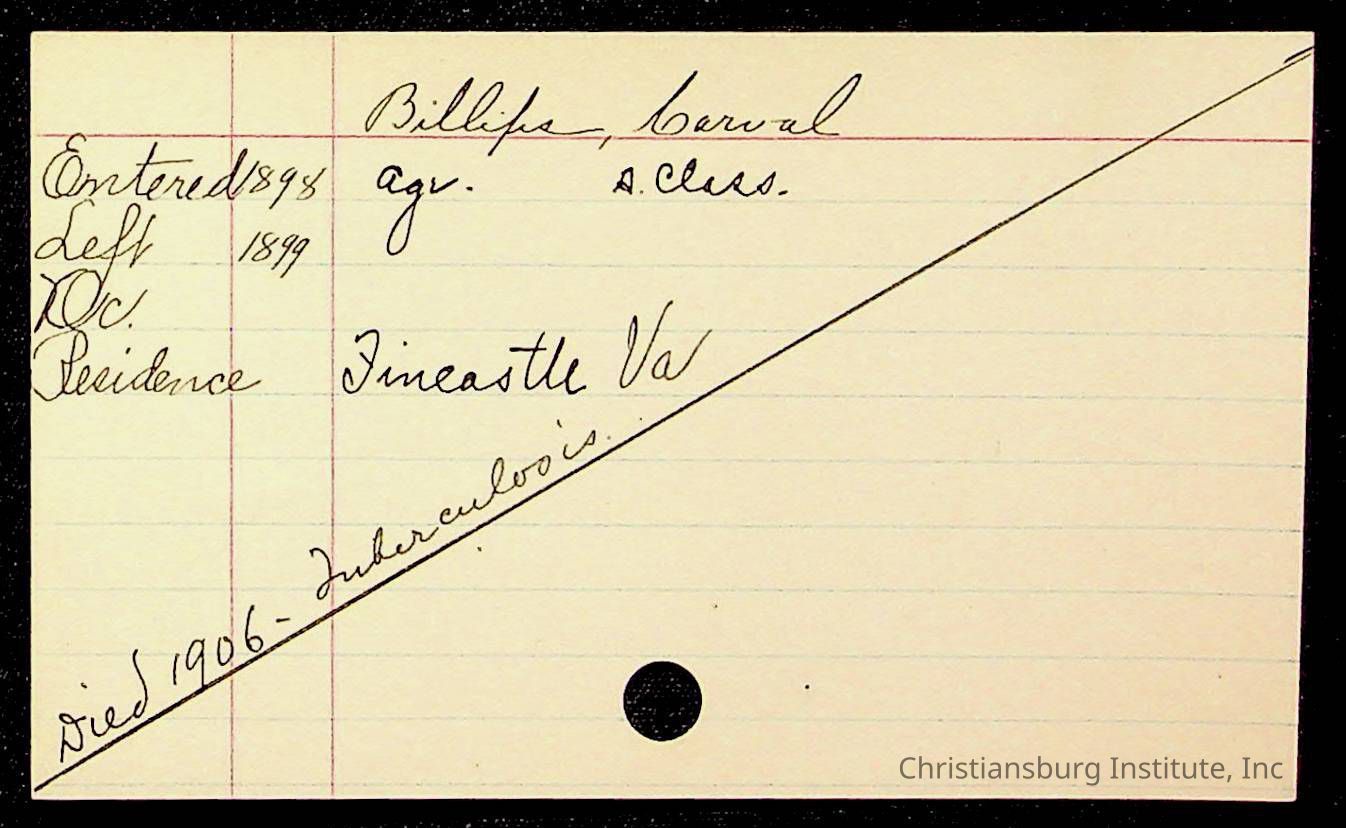 Billips, Carval
Entered 1898 agr. s. class.
Left 1899
Oc.
Residence Fincastle Va
Died 1906 - Tuberculosis.
Christiansburg Institute, Inc